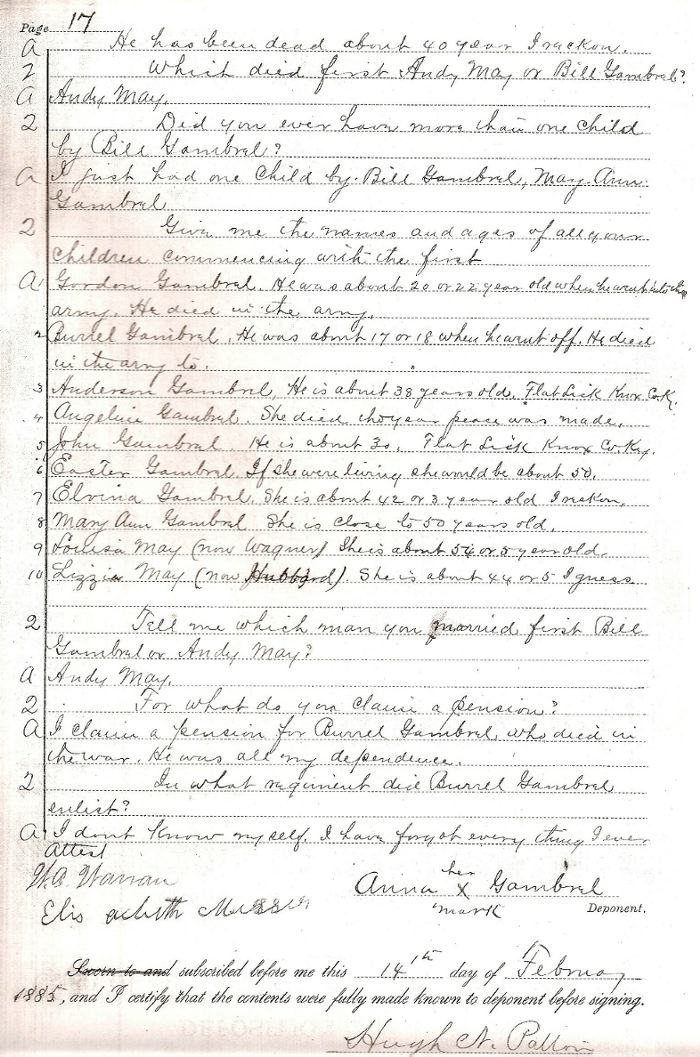 Page 17
A He has been dead about 40 year I reckon.
Q Which died first Andy May or Bill Gambrel?
A Andy May.
Q Did you ever have more than one child
by Bill Gambrel?
A I just had one child by Bill Gambrel, May Ann
Gambrel
Q Give me the names and ages of all your
children commencing with the first
A Gordon Gambrel. He was about 20 or 22 year old when he went into the
army. He died in the army.
2 Burrel Gambrel. He was about 17 or 18 when he went off. He died
in the army to.
3 Anderson Gambrel, He is about 38 years old. Flat Lick Knox Co K.
4 Angeline Gambrel. She died the year peace was made.
5 John Gambrel He is about 30. Flat Lick Knox Co Ky.
6 Easter Gambrel. If she were living she would be about 50.
7 Elvina Gambrel. She is about 42 or 3 year old I reckon.
8 Mary Ann Gambrel She is close to 50 years old.
9 Louisa May (now Wagner) She is about 54 or 5 year old.
10 Lizzie May (now Hubbard). She is about 44 or 5 I guess
Q Tell me which man you married first Bill
Gambrel or Andy May?
A Andy May.
Q For what do you claim a pension?
A I claim a pension for Burrel Gambrel who died in
the war. He was all my dependence.
Q In what regiment did Burrel Gambrel
enlist?
A I dont know myself. I have forgot every thing I ever
Attest
W.A.
her
Anna X Gambrel
mark
Deponent.
Sworn to and subscribed before me this 14th day of February
1885, and I certify that the contents were fully made known to deponent before signing.
Hugh N. Patton